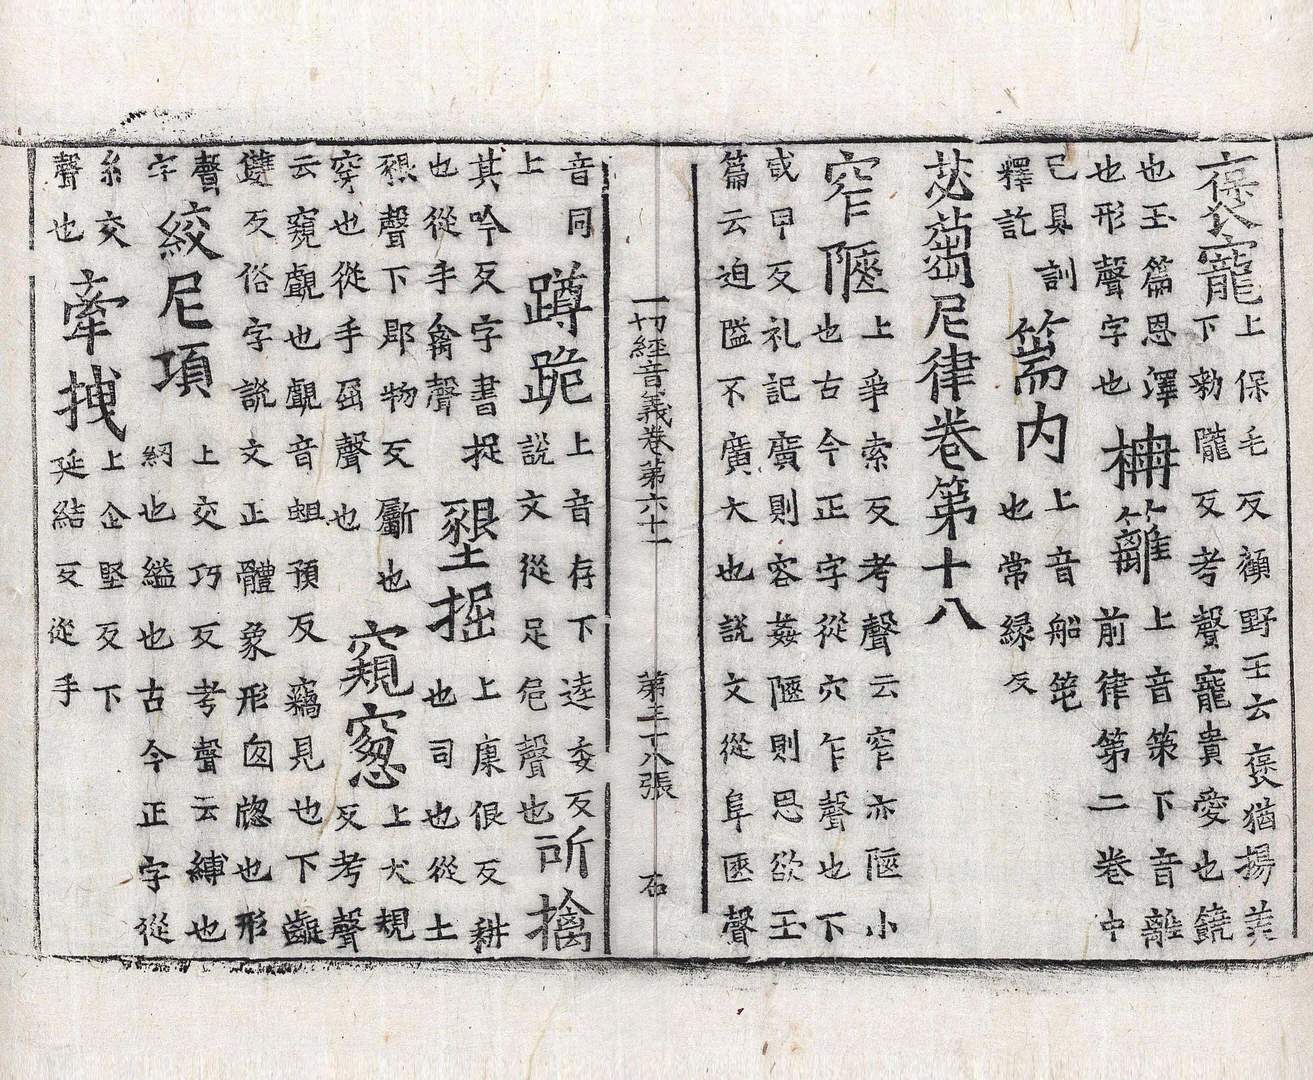 褒寵
上保毛反顧野王云褒猶揚美
下勑隴反考聲寵貴愛也饒
也玉篇恩澤
也形聲字也
柵籬
上音策下音離
前律第二卷中
已具訓
釋訖
篅内
上音船笔
也常緑反
苾蒭尼律卷第十八
窄陿
上爭索反考聲云窄亦陿小
也古今正字從穴乍聲也下
咸甲反礼記廣則容姦陿則思欲玉
篇云迫隘不廣大也說文從阜匧聲
一切經音義卷第六十一 第三十八張 石
音同
上
蹲跪
上音存下逵委反
說文從足危聲也
所擒
其吟反字書捉
也從手禽聲
墾掘
上康佷反耕
也司也從土
豤聲下郡物反斸也
穿也從手屈聲也
窺窓
上犬規
反考聲
云窺覰也覰音蛆預反竊見也下
雙反俗字說文正體象形囪牕也形
聲
字
絞尼項
上交巧反考聲云縛也
紉也縊也古今正字從
糸交
聲也
牽拽
上企堅反下
延結反從手